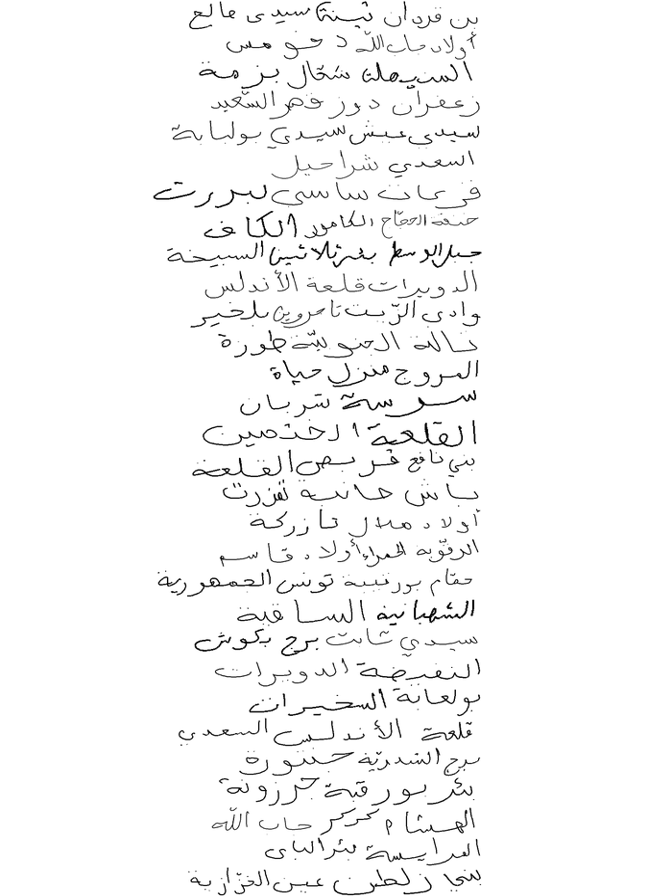 بن قردان ثبينة سيدي صالح
أولاد جاب الله دخومس
السبيعات شخال بزمة
زعفران دوز قصر السعيد
سيدي عيش سيدي بولبابة
السعدي شراحيل
فريحات ساسي لبررت
خنقة الحجاج الكامور الكاف
جبل الوسط بئر ثلاثين السبيخة
الدويرات قلعة الأندلس
وادي الزيت تامروين بلخير
تالة الجنوبية طورة
المروج منزل حياة
سدرسة شربان
القلعة الدخنصين
بني نافع قربص القلعة
باش حانبة تقزرت
أولاد هلال تازركة
الرقوبة الحمراء أولاد قاسم
حمام بورقيبة تونس الجمهورية
الشهبانية الساقية
سيدي ثابت برج بكوش
النفيضة الدويرات
بولعابة السخيرات
قلعة الأندلس السعدي
برج السدرية خنيزرة
بئر بورقبة جرزونة
الهشام كركر جاب الله
العرايسة بئر الباي
زلطن عين الغزازية